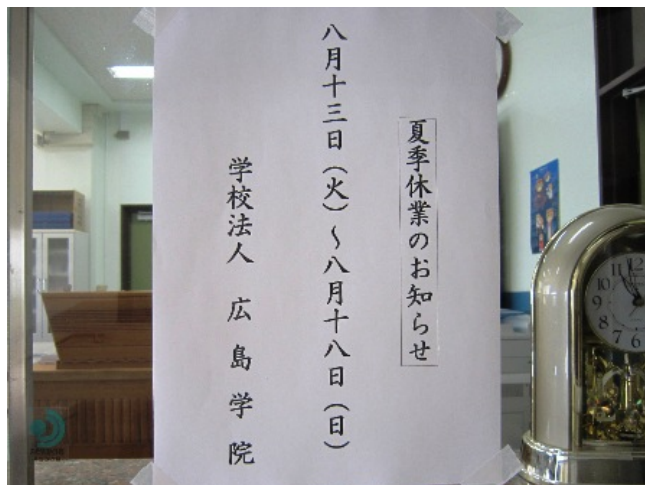 夏季休業のお知らせ
八月十三日（火）～八月十八日（日）
学校法人　広島学院